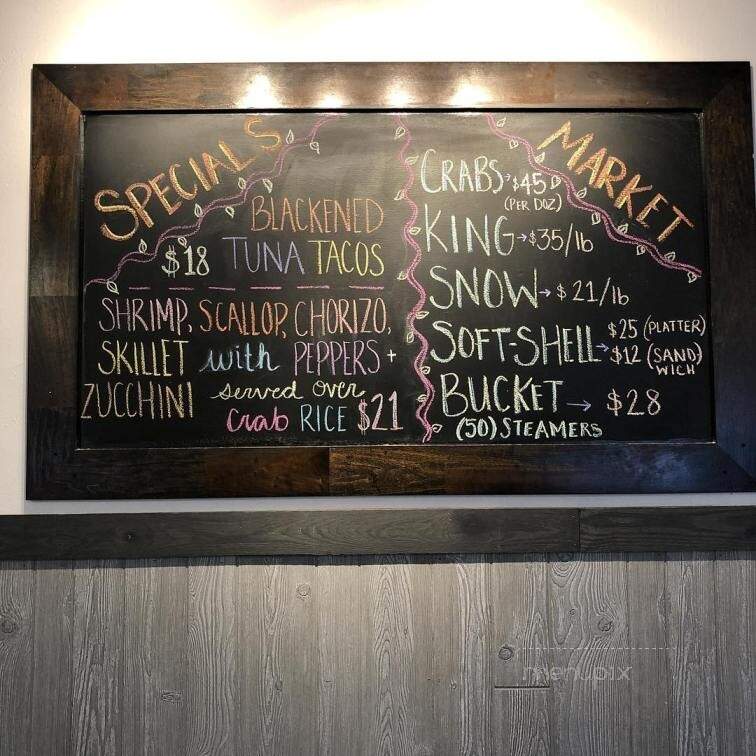 SPECIALS
BLACKENED
$18 TUNA TACOS
SHRIMP, SCALLOP, CHORIZO,
SKILLET with PEPPERS +
ZUCCHINI served over
Crab RICE $21
MARKET
CRABS → $45
(PER DOZ)
KING → $35/lb
SNOW → $21/lb
SOFT-SHELL → $25 (PLATTER)
$12 (SAND)
WICH
BUCKET → $28
(50) STEAMERS
menupix